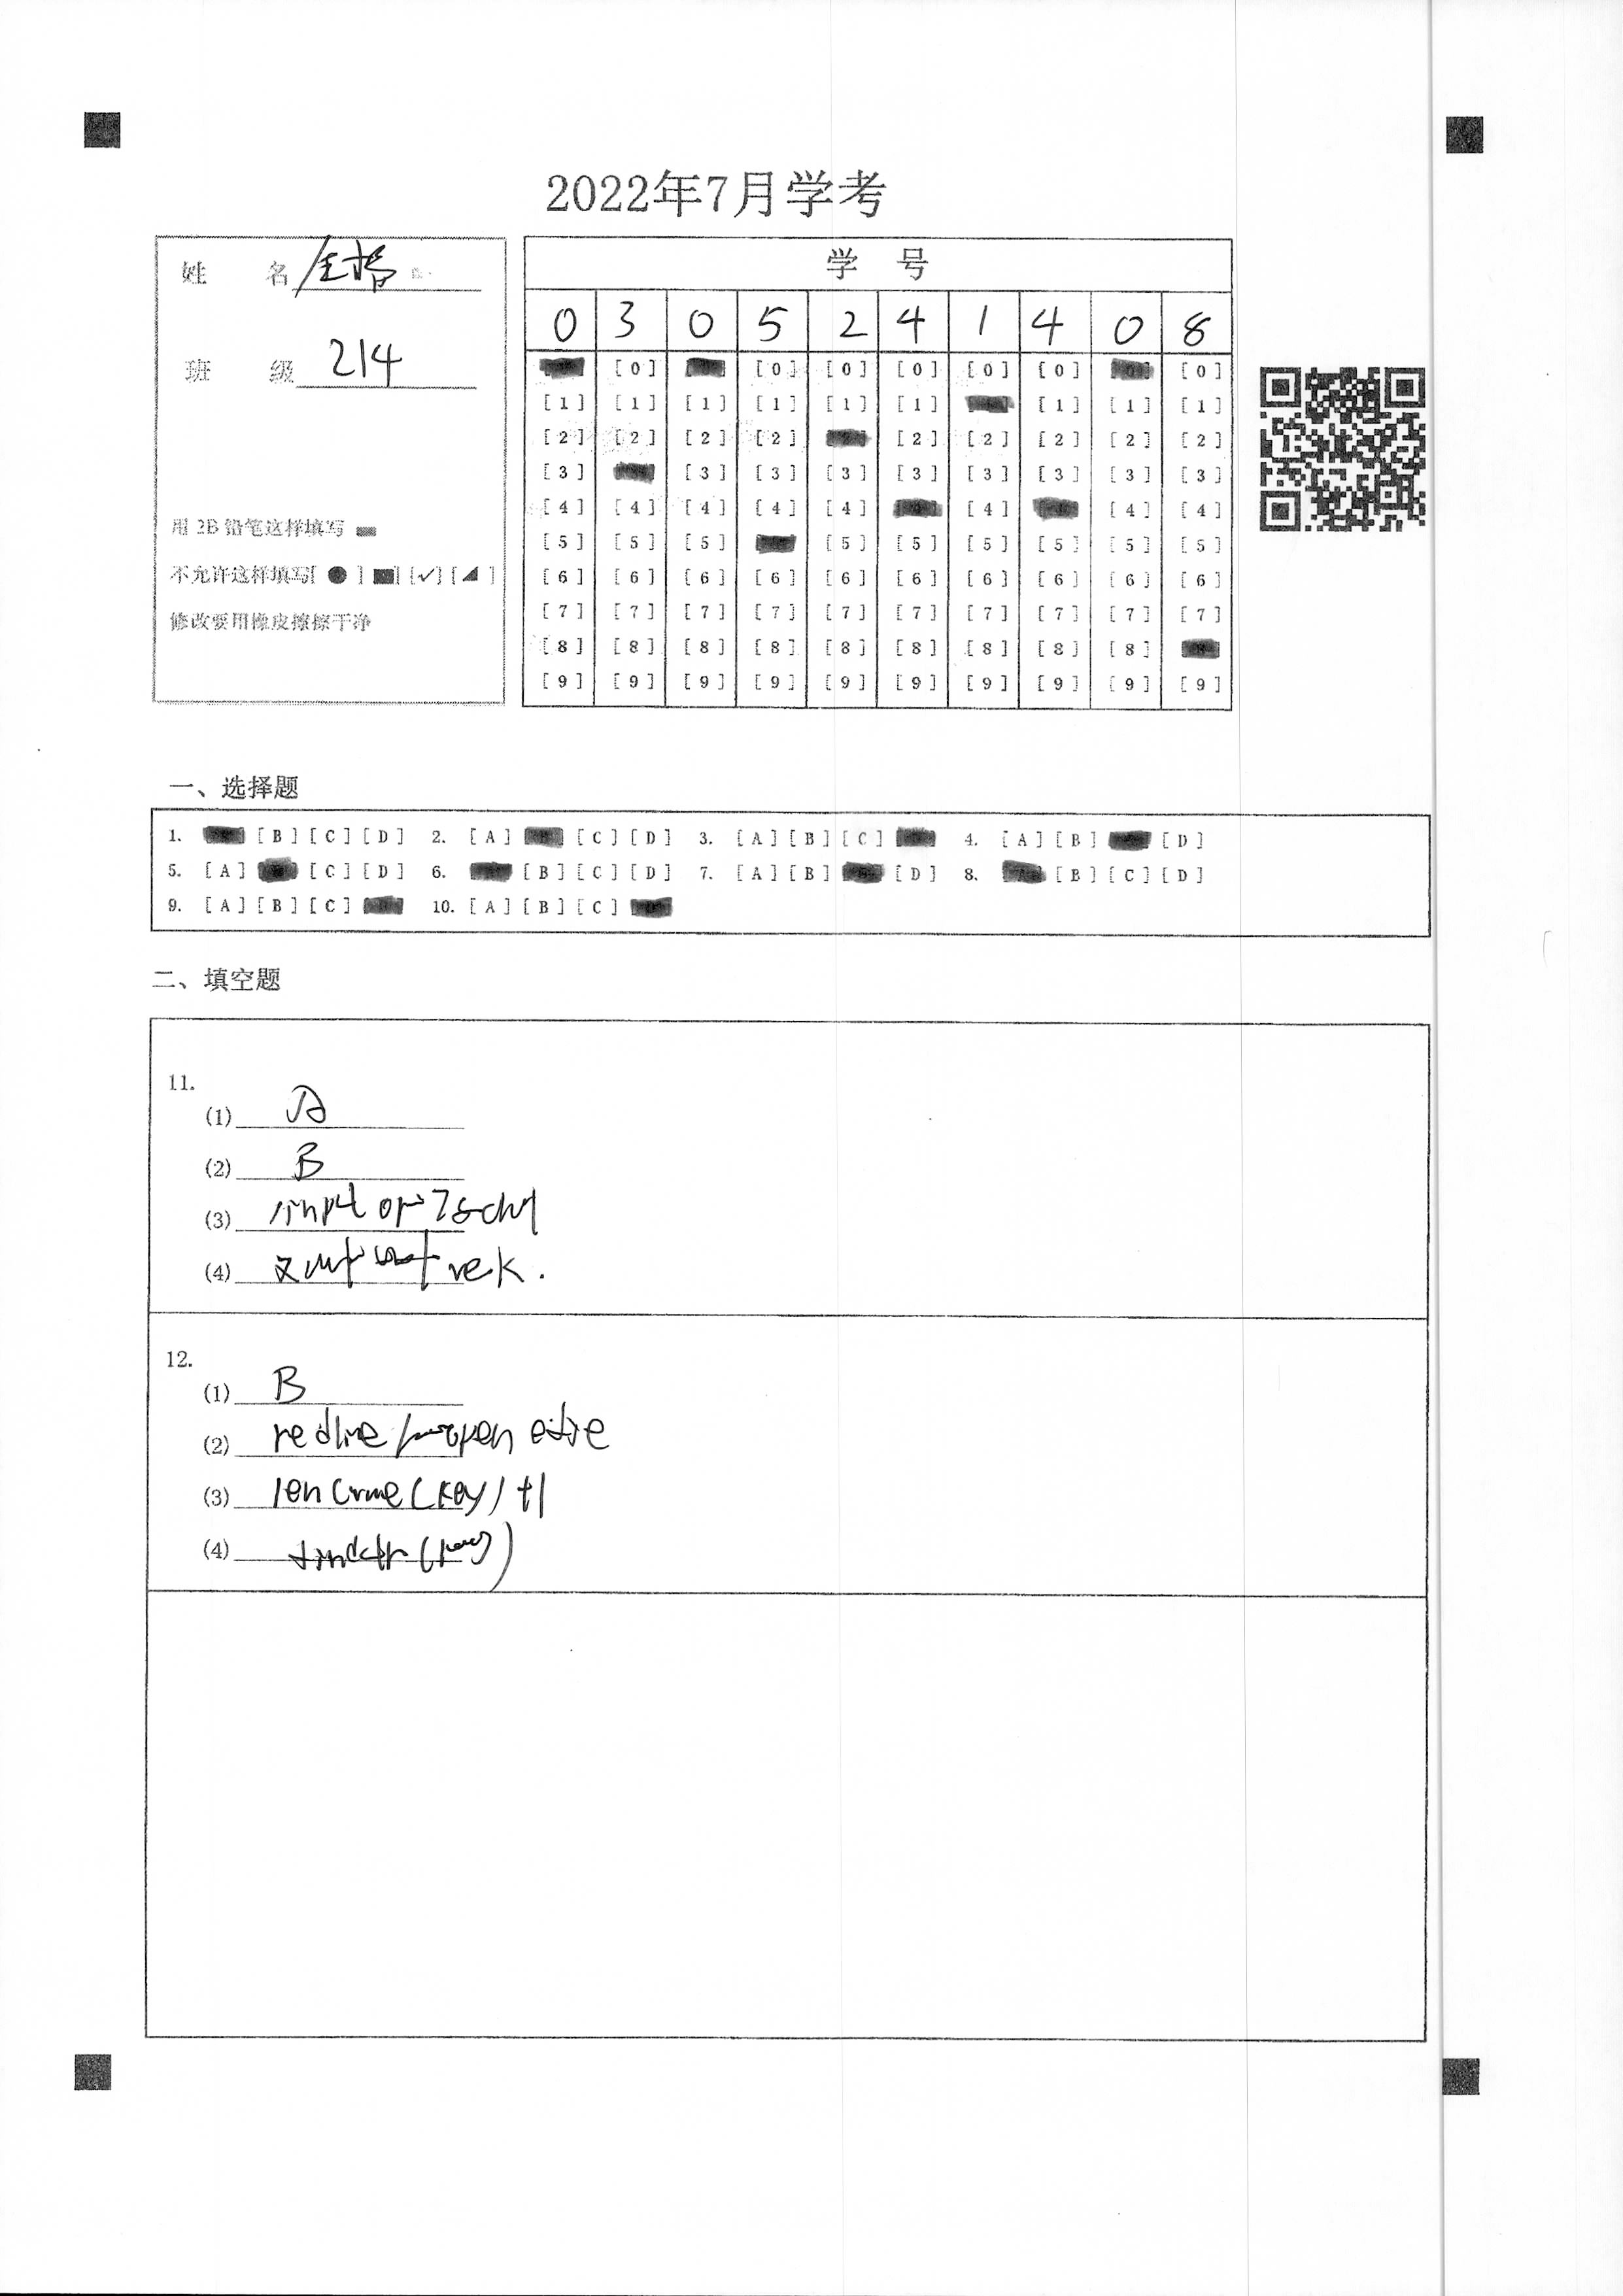 2022年7月学考
姓 名
班 级 214
用 2B 铅笔这样填写
不允许这样填写[ ● ] [■] [✓] [◢ ]
修改要用橡皮擦擦干净
学 号
0 3 0 5 2 4 1 4 0 8
[0] [0] [0] [0] [0] [0] [0]
[1] [1] [1] [1] [1] [1] [1] [1] [1]
[2] [2] [2] [2] [2] [2] [2] [2] [2]
[3] [3] [3] [3] [3] [3] [3] [3] [3]
[4] [4] [4] [4] [4] [4] [4] [4]
[5] [5] [5] [5] [5] [5] [5] [5] [5]
[6] [6] [6] [6] [6] [6] [6] [6] [6] [6]
[7] [7] [7] [7] [7] [7] [7] [7] [7] [7]
[8] [8] [8] [8] [8] [8] [8] [8] [8]
[9] [9] [9] [9] [9] [9] [9] [9] [9] [9]
一、选择题
1. [B] [C] [D] 2. [A] [C] [D] 3. [A] [B] [C] 4. [A] [B] [D]
5. [A] [C] [D] 6. [B] [C] [D] 7. [A] [B] [D] 8. [B] [C] [D]
9. [A] [B] [C] 10. [A] [B] [C]
二、填空题
11.
(1) A
(2) B
(3)
(4)
12.
(1) B
(2)
(3) (key)+1
(4)